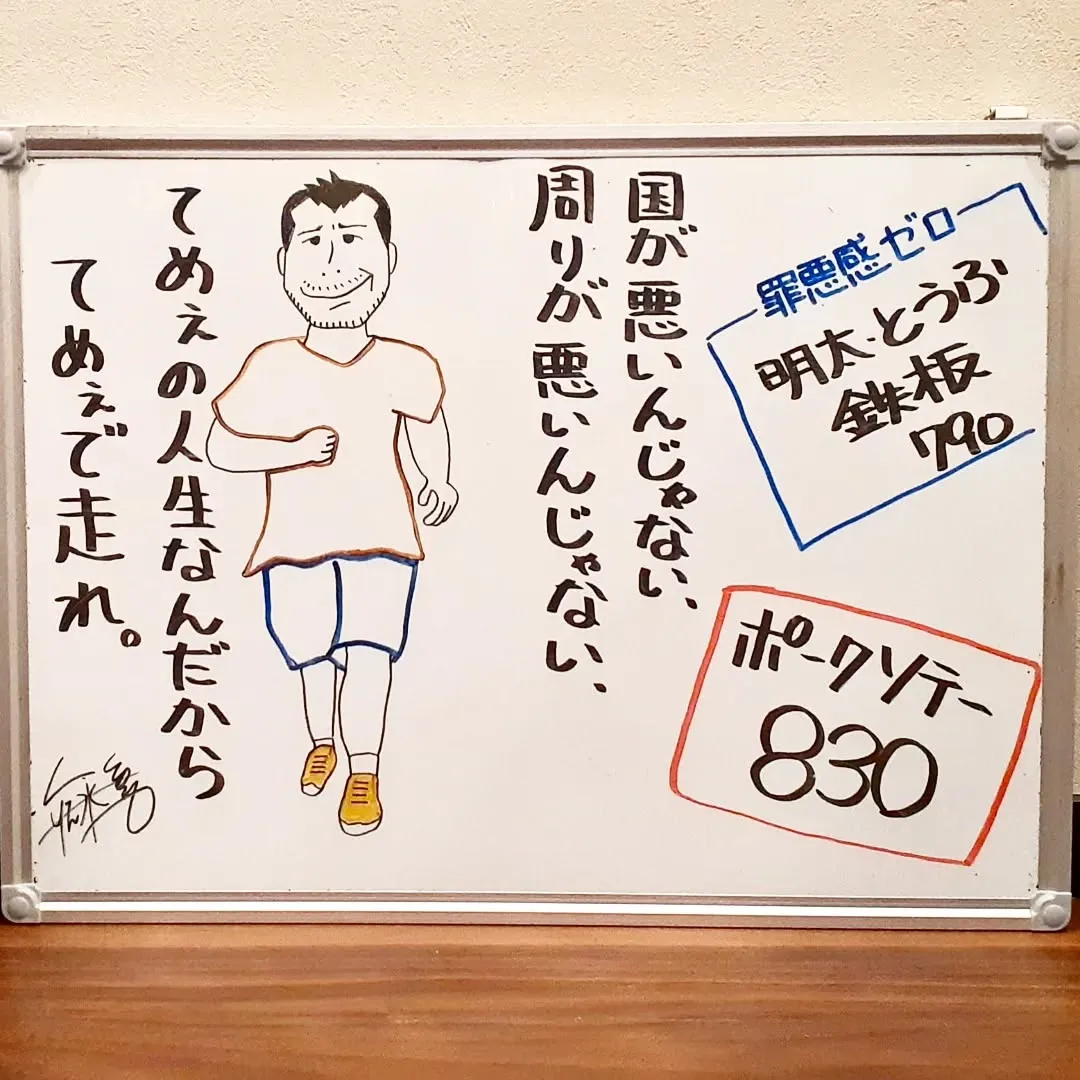 罪悪感ゼロ
明太とうふ
鉄板
790
ポークソテー
830
国が悪いんじゃない、
周りが悪いんじゃない、
てめぇの人生なんだから
てめぇで走れ。